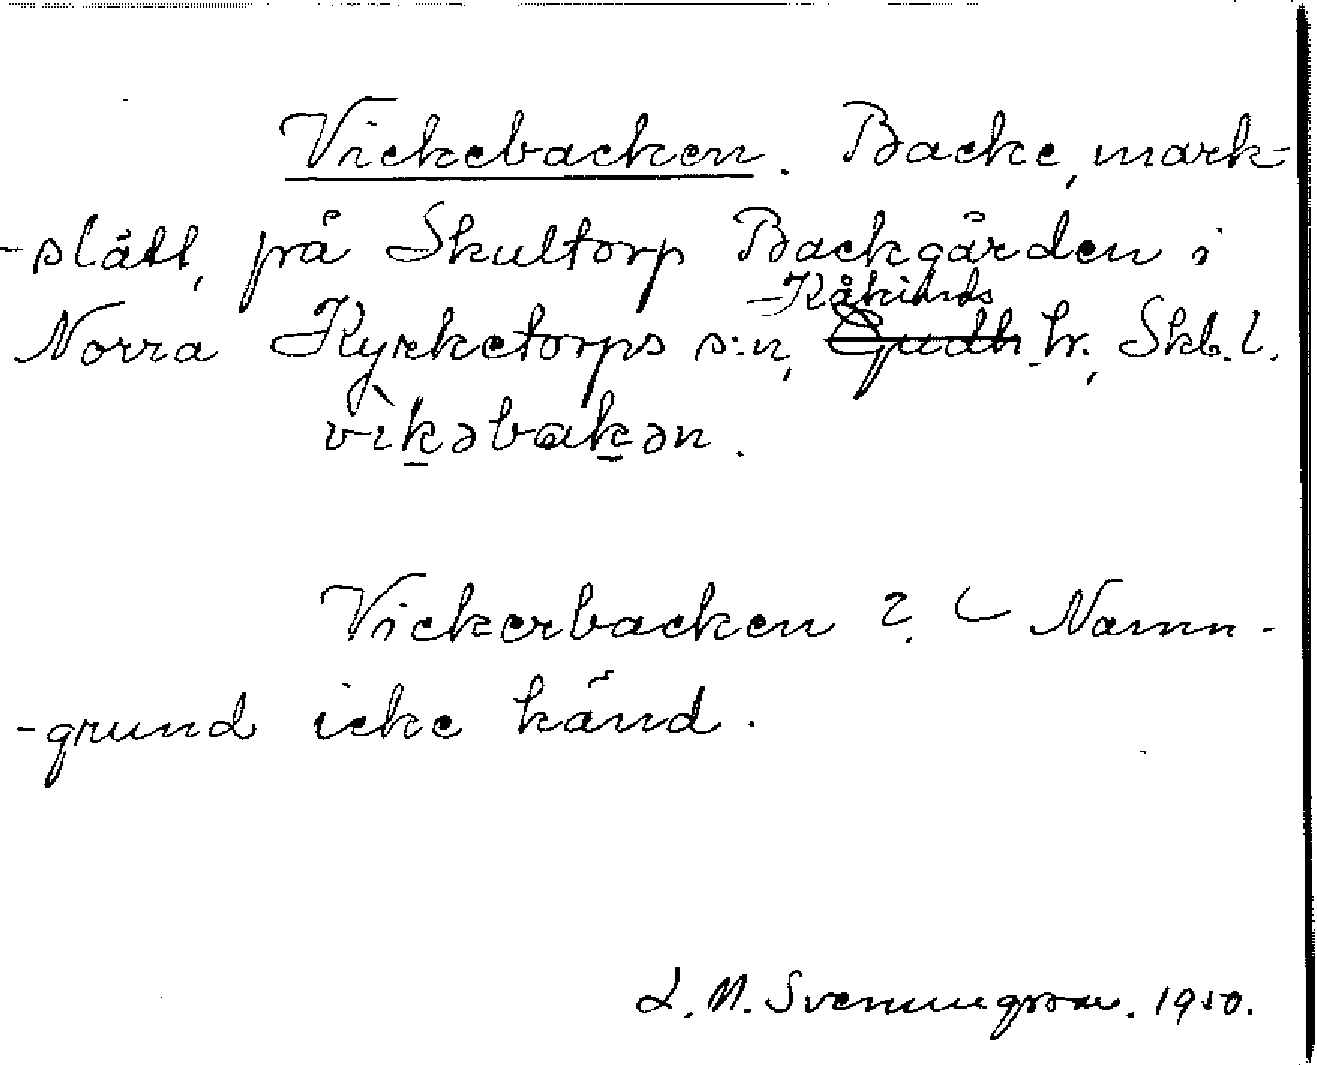 Vickebacken. Backe, mark-
-slått, på Skultorp Backgården i
Kåkinds
Norra Kyrketorps s:n, Gudh. hr., Skb. l.
vìkəbakən.
Vickerbacken?. Namn-
-grund icke känd.
L. M. Svenungsson. 1950.